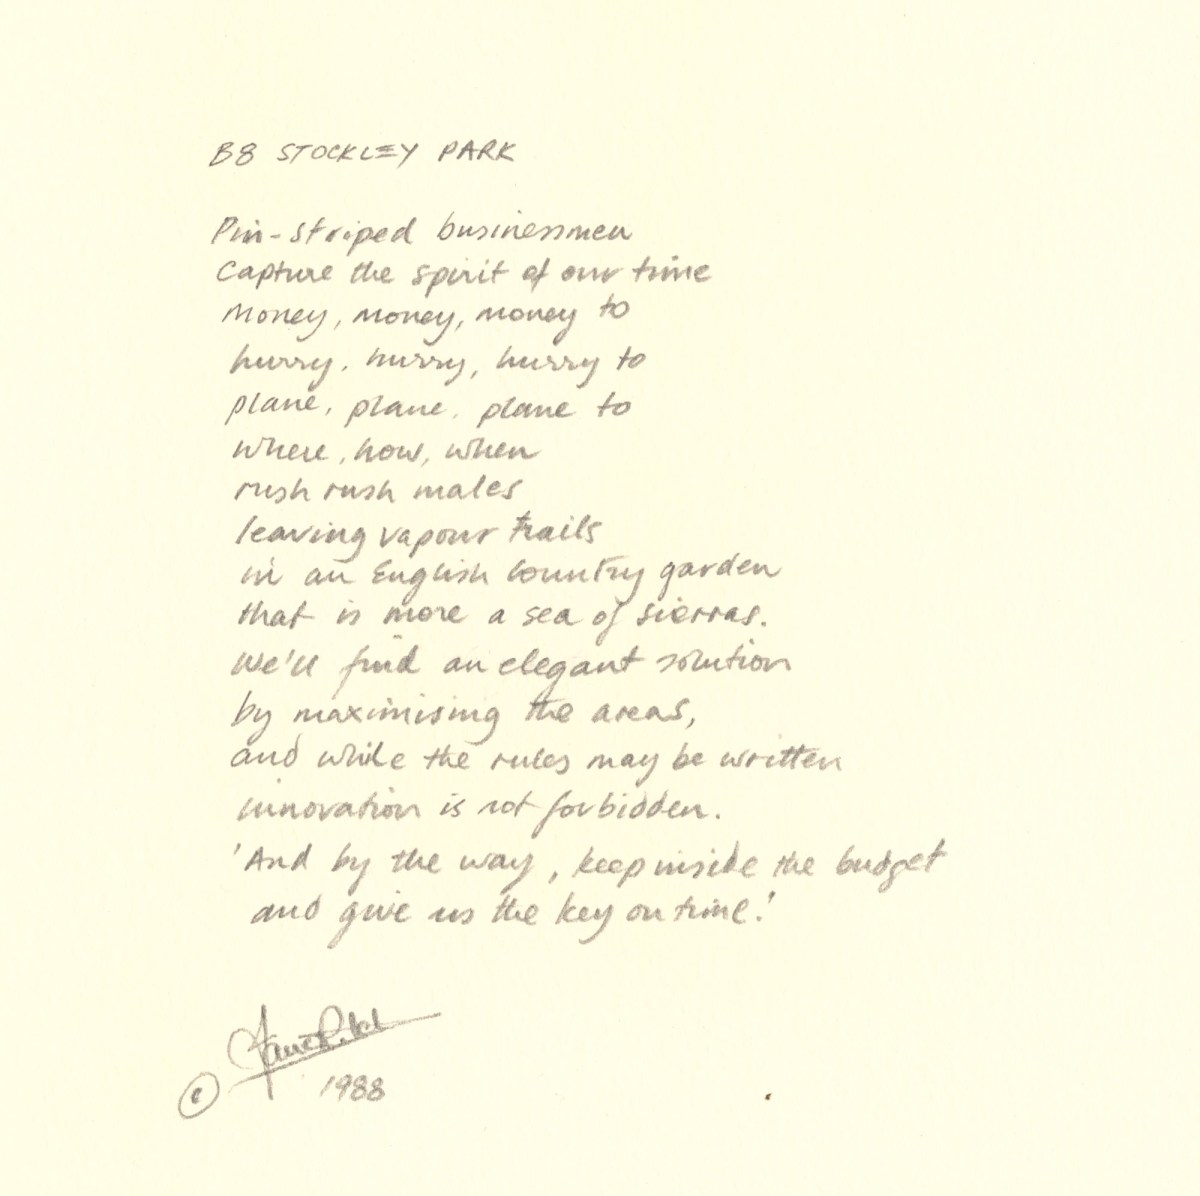 B8 STOCKLEY PARK
Pin-striped businessmen
Capture the spirit of our time
Money, money, money to
hurry, hurry, hurry to
plane, plane, plane to
where, how, when
rush rush males
leaving vapour trails
in an English Country garden
that is more a sea of sierras.
We'll find an elegant solution
by maximising the areas,
and while the rules may be written
innovation is not forbidden.
'And by the way, keep inside the budget
and give us the key on time.'
© 1988